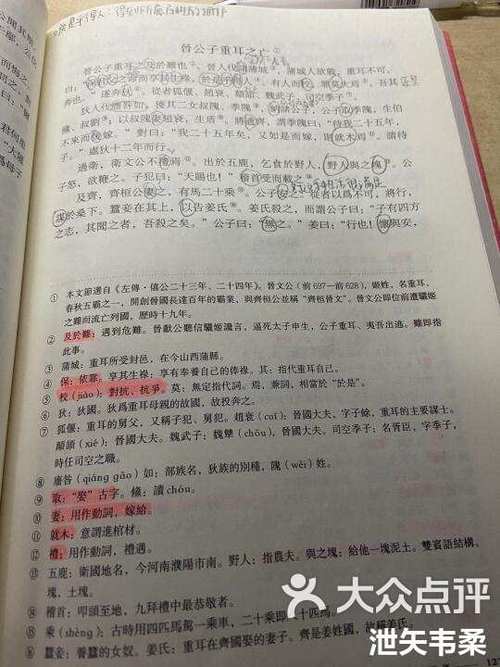 晉公子重耳之亡
晉公子重耳之及於難也，晉人伐諸蒲城。蒲城人欲戰，重耳不可，
奔也。”遂奔狄。從者狐偃、趙衰、顛頡、魏武子、司空季子。
狄人伐廧咎如，獲其二女叔隗、季隗，納諸公子。公子取季隗，生伯
儵、叔劉；以叔隗妻趙衰，生盾。將適齊，謂季隗曰：“待我二十五年，
不來而後嫁。”對曰：“我二十五年矣，又如是而嫁，則就木焉。請待
子。”處狄十二年而行。
過衛，衛文公不禮焉。出於五鹿，乞食於野人，野人與之塊。公
子怒，欲鞭之。子犯曰：“天賜也！”稽首受而載之。
及齊，齊桓公妻之，有馬二十乘。公子安之。從者以爲不可，將行，
謀於桑下。蠶妾在其上，以告姜氏。姜氏殺之，而謂公子曰：“子有四方
之志，其聞之者，吾殺之矣。”公子曰：“無之。”姜曰：“行也！懷與安，
① 本文節選自《左傳·僖公二十三年、二十四年》。晉文公（前697—前628），姬姓，名重耳，
春秋五霸之一，開創晉國長達百年的霸業，與齊桓公並稱“齊桓晉文”。晉文公即位前遭驪姬
之難而流亡列國，歷時十九年。
② 及於難：遇到危難。晉獻公聽信驪姬讒言，逼死太子申生，公子重耳、夷吾出逃。難即指
此事。
③ 蒲城：重耳所受封邑，在今山西蒲縣。
④ 保：依靠。享其生祿：享有奉養自己的俸祿。其：指代重耳自己。
⑤ 校（jiào）：對抗、抗爭。莫：無定指代詞。焉：兼詞，相當於“於是”。
⑥ 狄：狄國。狄爲重耳母親的故國，故投奔之。
⑦ 狐偃：重耳的舅父，又稱子犯、舅犯。趙衰（cuī）：晉國大夫，字子餘，重耳的主要謀士。
顛頡（xié）：晉國大夫。魏武子：魏犨（chōu），晉國大夫。司空季子：名胥臣，字季子，
時任司空之職。
⑧ 廧咎（qiáng gāo）如：部族名，狄族的別種，隗（wěi）姓。
⑨ 取：“娶”古字。儵：讀chóu。
⑩ 妻：用作動詞，嫁給。
⑪ 就木：意謂進棺材。
⑫ 禮：用作動詞，禮遇。
⑬ 五鹿：衛國地名，在今河南濮陽市南。野人：指農夫。與之塊：給他一塊泥土。雙賓語結構。
塊，土塊。
⑭ 稽首：叩頭至地，九拜禮中最恭敬者。
⑮ 乘（shèng）：古時用四匹馬駕一乘車，二十乘即八十匹馬。
⑯ 蠶妾：養蠶的女奴。姜氏：重耳在齊國娶的妻子。齊是姜姓國，故稱姜氏。
大众点评
泄矢韦柔